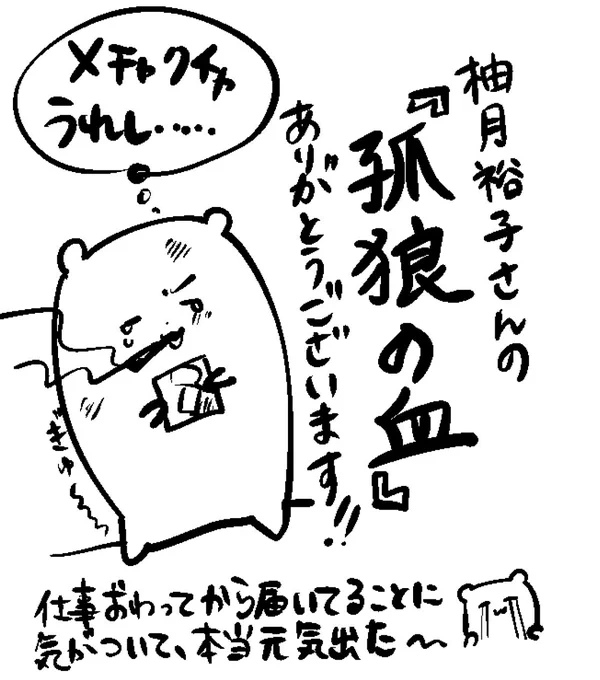 柚月裕子さんの
『孤狼の血』
ありがとうございます!!
メチャクチャ
うれし……
ぎゅ〜
仕事おわってから届いてることに
気がついて、本当元気出た〜